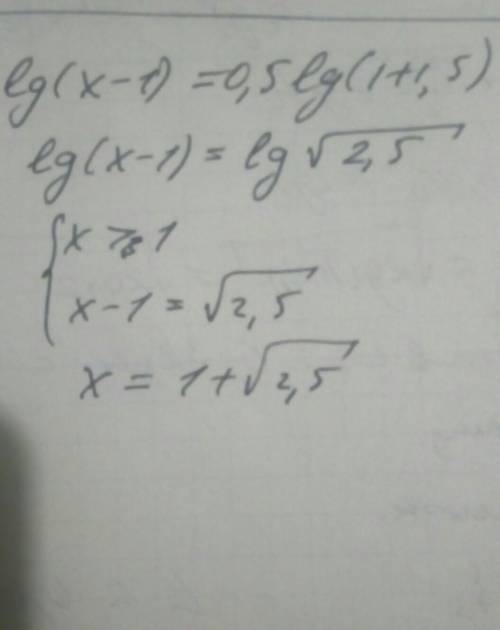 lg(x-1) = 0,5 lg(1+1,5)
lg(x-1) = lg √2,5
{ x > 1
x-1 = √2,5
x = 1+√2,5